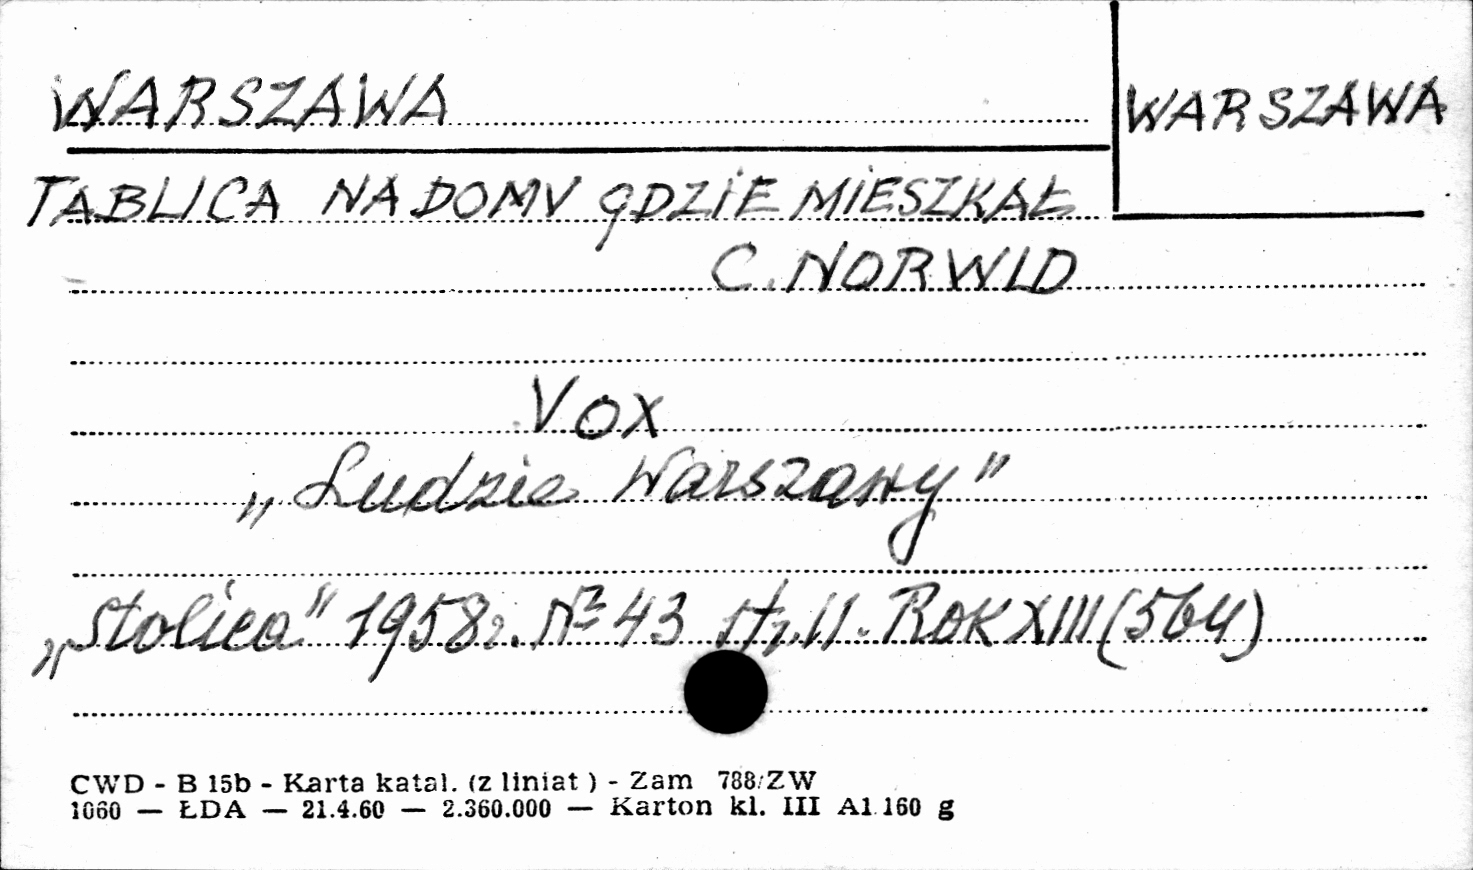 WARSZAWA
WARSZAWA
TABLICA NA DOMU GDZIE MIESZKAŁ
C. NORWID
VOX
„Ludzie Warszawy"
„Stolica" 1958r. № 43 str. 11. Rok XIII (564)
CWD - B 15b - Karta katal. (z liniat ) - Zam 788/ZW
1060 — ŁDA — 21.4.60 — 2.360.000 — Karton kl. III A1 160 g